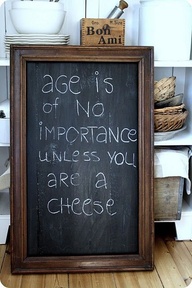 Bon
Ami
age is
of no
importance
unless you
are a
cheese